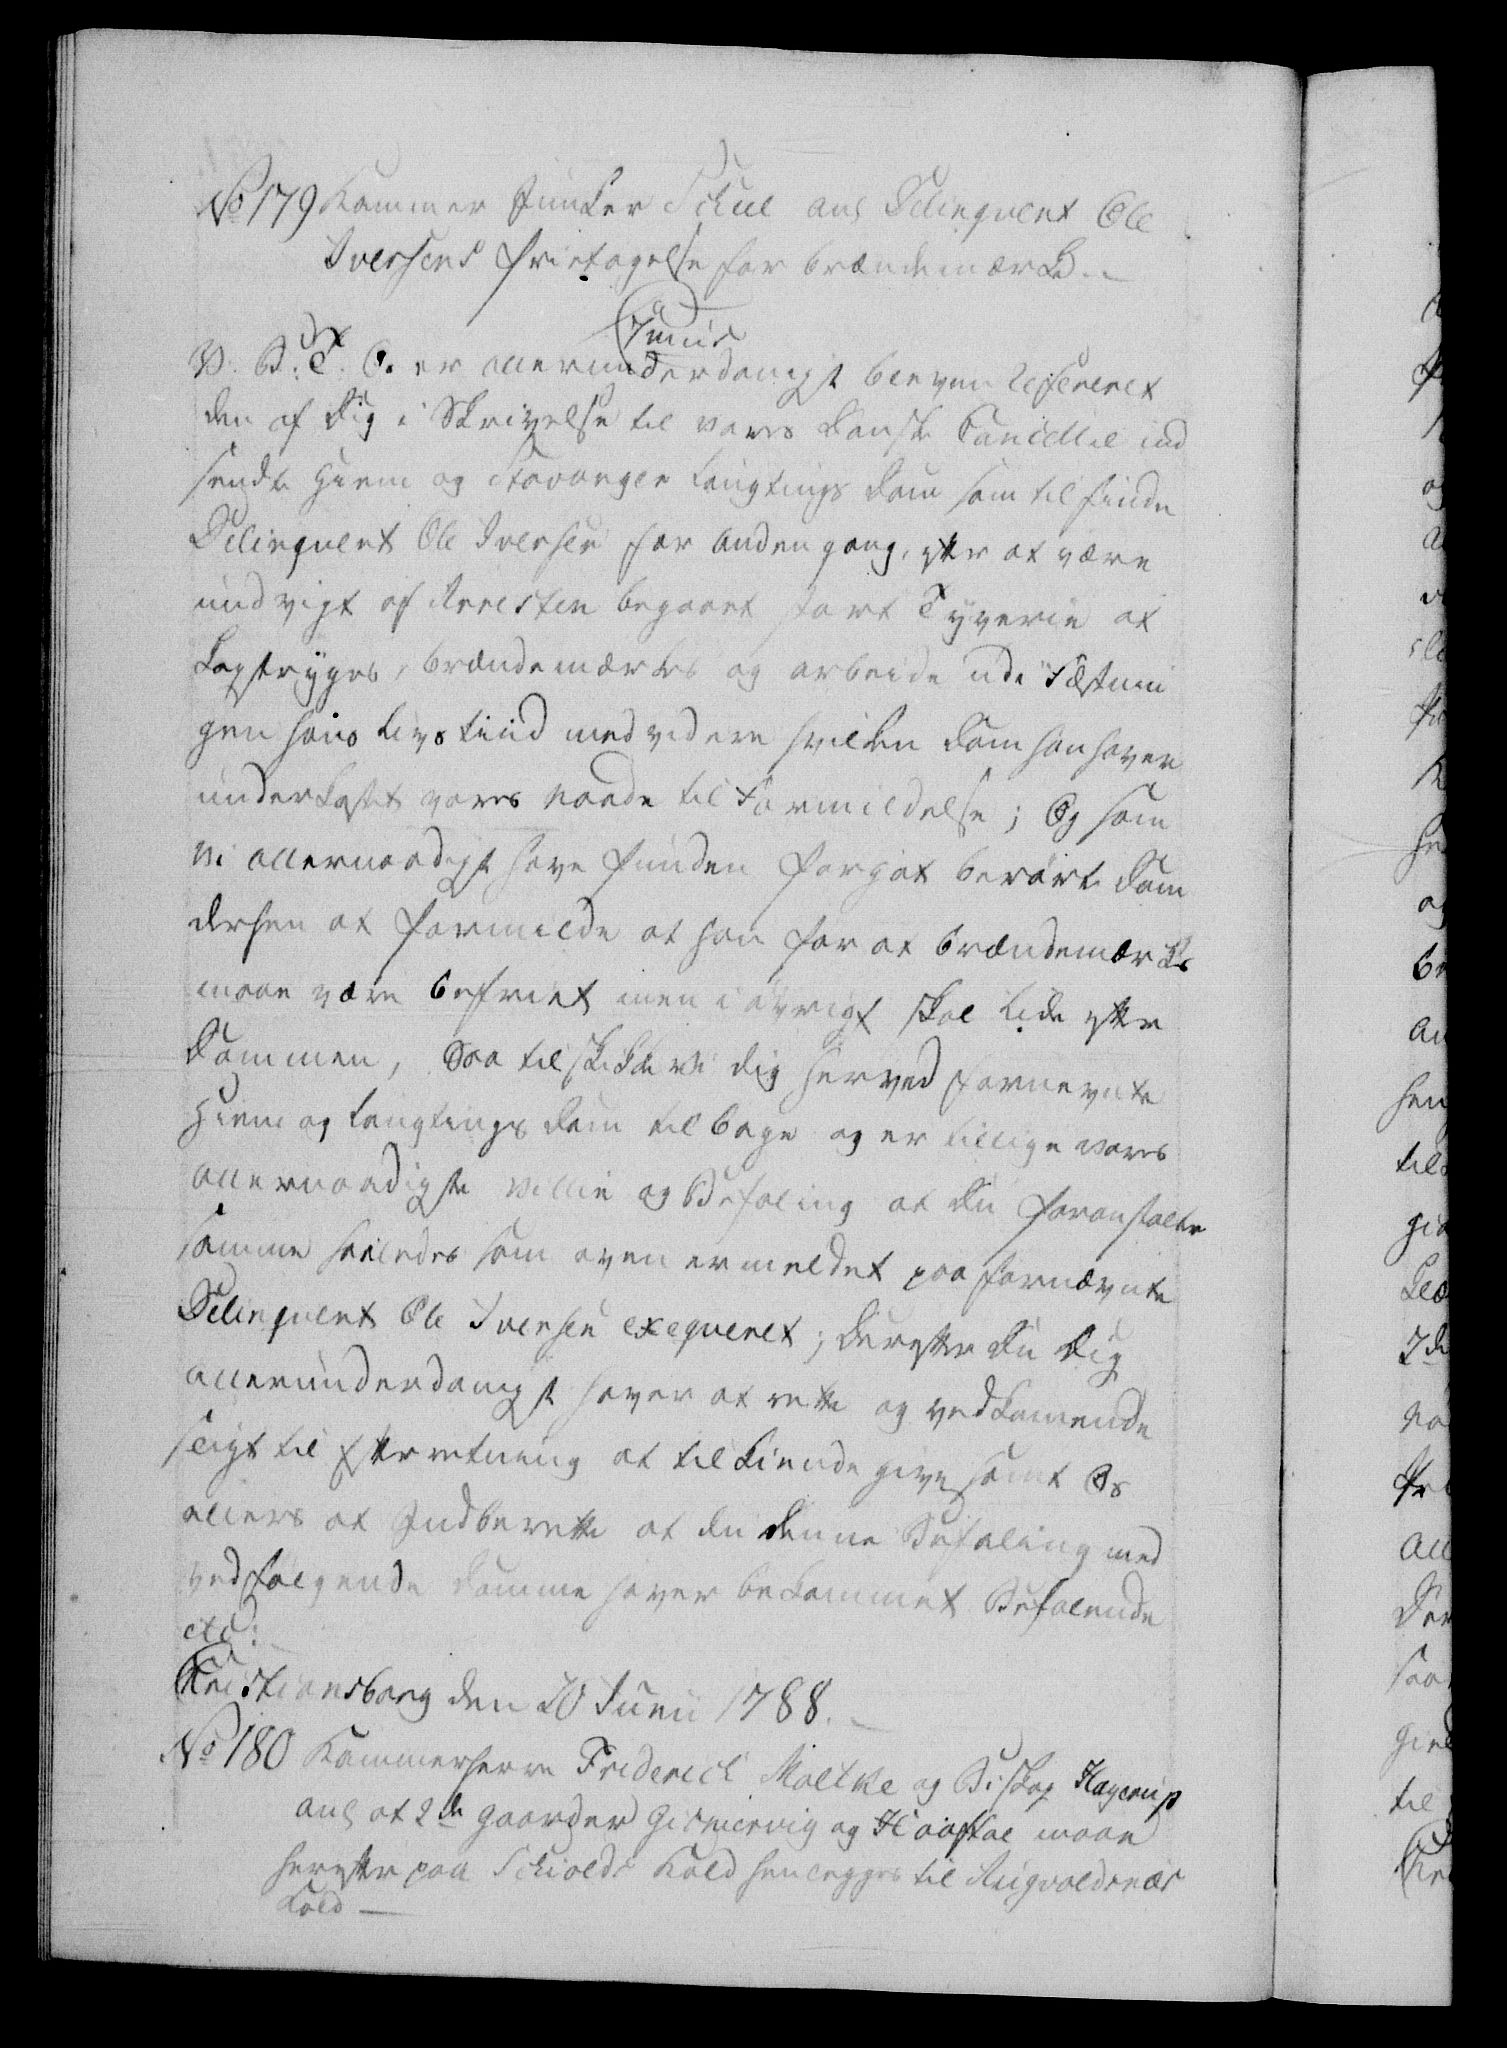 No 179 Kammer Junker Schul ang Delinqvent Ole
Iversens fritagelse for brændemærke.
7 Junii
V. G. T. C. er allerunderdanigst bleven refereret
den af dig i Skrivelse til vores Danske Cancellie ind
sendte Hiem og Stavanger Laugtings Dom som tilfinder
Delinqvent Ole Iversen for anden gang, efter at være
undvigt af Arresten begaaet stort Tyverie at
Kagstryges, brændemærkes og arbeide udi Fæstnin
gen hans Livs tiid med videre hvilken Dom han haver
underkastet vores Naade til Formildelse; Og som
Vi allernaadigst have funden forgot berørte Dom
dersen at formilde at han for at brændemærkes
maae være befriet men i øvrigt skal lide efter
Dommen, Saa tilskikke Vi dig herved fornevnte
Hiem og Laugtings Dom tilbage og er tillige vores
allernaadigste Villie og Befaling at du foranstalter
samme saaledes som oven ermeldet paa fornævnte
Delinqvent Ole Iversen exeqveret; Derefter du dig
allerunderdanigst haver at rette og vedkommende
sligt til Efterretning at tilkiendegive, samt Os
ellers at Indberette at du denne Befaling med
vedfølgende Domme haver bekommet Befalende
etc:
Christiansborg den 20 Junii 1788.
No 180 Kammerherre Friderich Moltke og Biskop Hagerup
ang at 2de Gaarder Gismervig og Haafstae maae
herefter paa Schiolds Kald henlegges til Augvaldsnæs
Kald